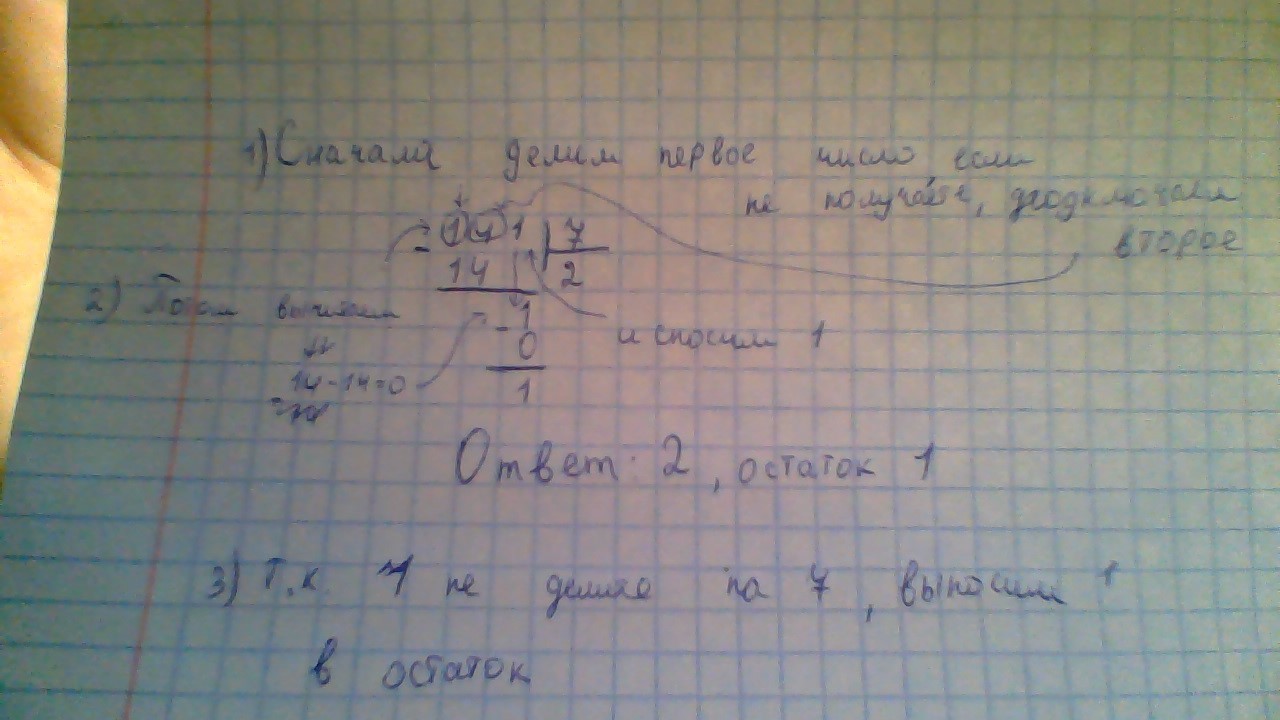 1) Сначала делим первое число если
не получается, подключаем
второе
141 | 7
14 2
2) Потом вычитаем
- 1
0
и сносим 1
14-14=0
1
Ответ: 2, остаток 1
3) Т.к 1 не делится на 7, выносим 1
в остаток